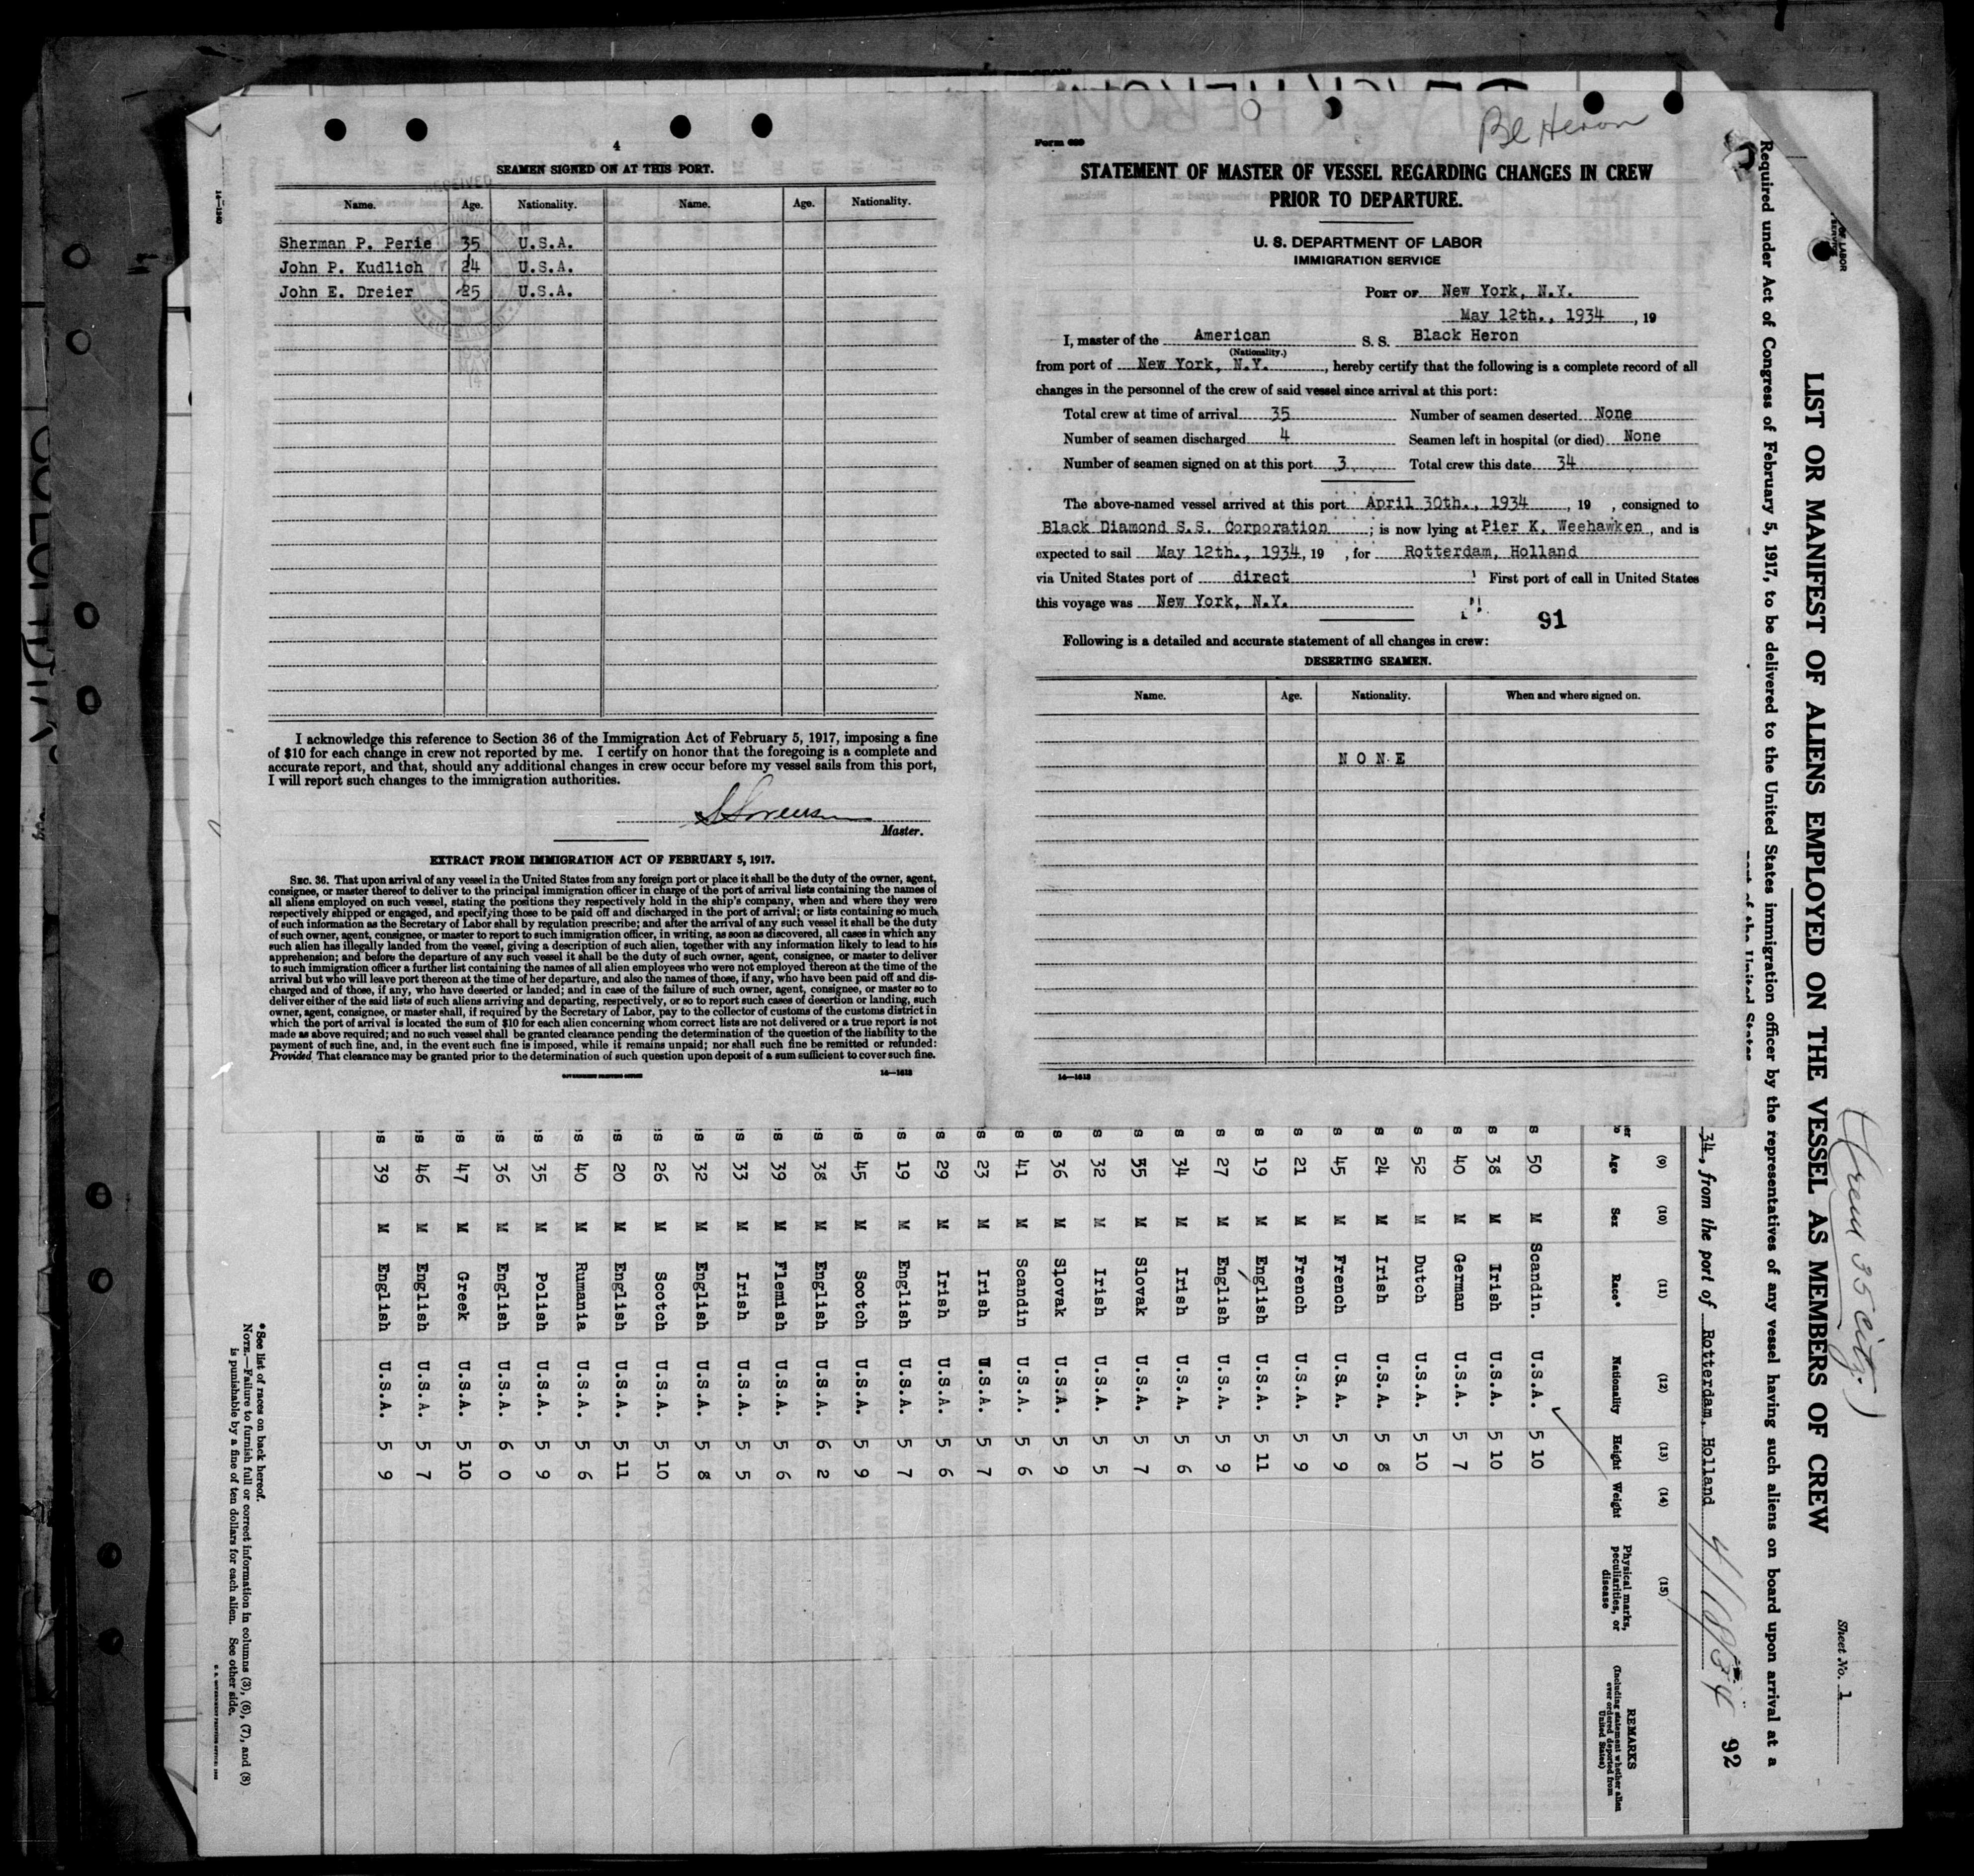 4
SEAMEN SIGNED ON AT THIS PORT.
RECEIVED
Name. Age. Nationality. Name. Age. Nationality.
Sherman P. Perie 35 U.S.A.
John P. Kudlich 24 U.S.A.
John E. Dreier 25 U.S.A.
I acknowledge this reference to Section 36 of the Immigration Act of February 5, 1917, imposing a fine
of $10 for each change in crew not reported by me. I certify on honor that the foregoing is a complete and
accurate report, and that, should any additional changes in crew occur before my vessel sails from this port,
I will report such changes to the immigration authorities.
Master.
EXTRACT FROM IMMIGRATION ACT OF FEBRUARY 5, 1917.
SEC. 36. That upon arrival of any vessel in the United States from any foreign port or place it shall be the duty of the owner, agent,
consignee, or master thereof to deliver to the principal immigration officer in charge of the port of arrival lists containing the names of
all aliens employed on such vessel, stating the positions they respectively hold in the ship's company, when and where they were
respectively shipped or engaged, and specifying those to be paid off and discharged in the port of arrival; or lists containing so much
of such information as the Secretary of Labor shall by regulation prescribe; and after the arrival of any such vessel it shall be the duty
of such owner, agent, consignee, or master to report to such immigration officer, in writing, as soon as discovered, all cases in which any
such alien has illegally landed from the vessel, giving a description of such alien, together with any information likely to lead to his
apprehension; and before the departure of any such vessel it shall be the duty of such owner, agent, consignee, or master to deliver
to such immigration officer a further list containing the names of all alien employees who were not employed thereon at the time of the
arrival but who will leave port thereon at the time of her departure, and also the names of those, if any, who have been paid off and dis-
charged and of those, if any, who have deserted or landed; and in case of the failure of such owner, agent, consignee, or master so to
deliver either of the said lists of such aliens arriving and departing, respectively, or so to report such cases of desertion or landing, such
owner, agent, consignee, or master shall, if required by the Secretary of Labor, pay to the collector of customs of the customs district in
which the port of arrival is located the sum of $10 for each alien concerning whom correct lists are not delivered or a true report is not
made as above required; and no such vessel shall be granted clearance pending the determination of the question of the liability to the
payment of such fine, and, in the event such fine is imposed, while it remains unpaid; nor shall such fine be remitted or refunded:
Provided, That clearance may be granted prior to the determination of such question upon deposit of a sum sufficient to cover such fine.
GOVERNMENT PRINTING OFFICE 14—1613
Bl Heron
Form 689
STATEMENT OF MASTER OF VESSEL REGARDING CHANGES IN CREW
PRIOR TO DEPARTURE.
U. S. DEPARTMENT OF LABOR
IMMIGRATION SERVICE
PORT OF New York, N.Y.
May 12th., 1934, 19
I, master of the American S. S. Black Heron
(Nationality.)
from port of New York, N.Y., hereby certify that the following is a complete record of all
changes in the personnel of the crew of said vessel since arrival at this port:
Total crew at time of arrival 35 Number of seamen deserted None
Number of seamen discharged 4 Seamen left in hospital (or died) None
Number of seamen signed on at this port 3 Total crew this date 34
The above-named vessel arrived at this port April 30th., 1934, 19 , consigned to
Black Diamond S.S. Corporation; is now lying at Pier K, Weehawken, and is
expected to sail May 12th., 1934, 19 , for Rotterdam, Holland
via United States port of direct First port of call in United States
this voyage was New York, N.Y.
91
Following is a detailed and accurate statement of all changes in crew:
DESERTING SEAMEN.
Name. Age. Nationality. When and where signed on.
NONE
14—1613
Sheet No. 1
(Crew 35 city.)
LIST OR MANIFEST OF ALIENS EMPLOYED ON THE VESSEL AS MEMBERS OF CREW
Required under Act of Congress of February 5, 1917, to be delivered to the United States immigration officer by the representatives of any vessel having such aliens on board upon arrival at a
port of the United States
34, from the port of Rotterdam, Holland 92
(9) (10) (11) (12) (13) (14) (15)
Age Sex Race* Nationality Height Weight Physical marks, peculiarities, or disease REMARKS
(Including statement whether alien ever ordered deported from United States)
50 M Scandin. U.S.A. 5 10
38 M Irish U.S.A. 5 10
40 M German U.S.A. 5 7
52 M Dutch U.S.A. 5 10
24 M Irish U.S.A. 5 8
45 M French U.S.A. 5 9
21 M French U.S.A. 5 9
19 M English U.S.A. 5 11
27 M English U.S.A. 5 9
34 M Irish U.S.A. 5 6
35 M Slovak U.S.A. 5 7
32 M Irish U.S.A. 5 5
36 M Slovak U.S.A. 5 9
41 M Scandin U.S.A. 5 6
23 M Irish U.S.A. 5 7
29 M Irish U.S.A. 5 6
19 M English U.S.A. 5 7
45 M Scotch U.S.A. 5 9
38 M English U.S.A. 6 2
39 M Flemish U.S.A. 5 6
33 M Irish U.S.A. 5 5
32 M English U.S.A. 5 8
26 M Scotch U.S.A. 5 10
20 M English U.S.A. 5 11
40 M Rumania U.S.A. 5 6
35 M Polish U.S.A. 5 9
36 M English U.S.A. 6 0
47 M Greek U.S.A. 5 10
46 M English U.S.A. 5 7
39 M English U.S.A. 5 9
*See list of races on back hereof.
NOTE.—Failure to furnish full or correct information in columns (3), (6), (7), and (8)
is punishable by a fine of ten dollars for each alien. See other side.